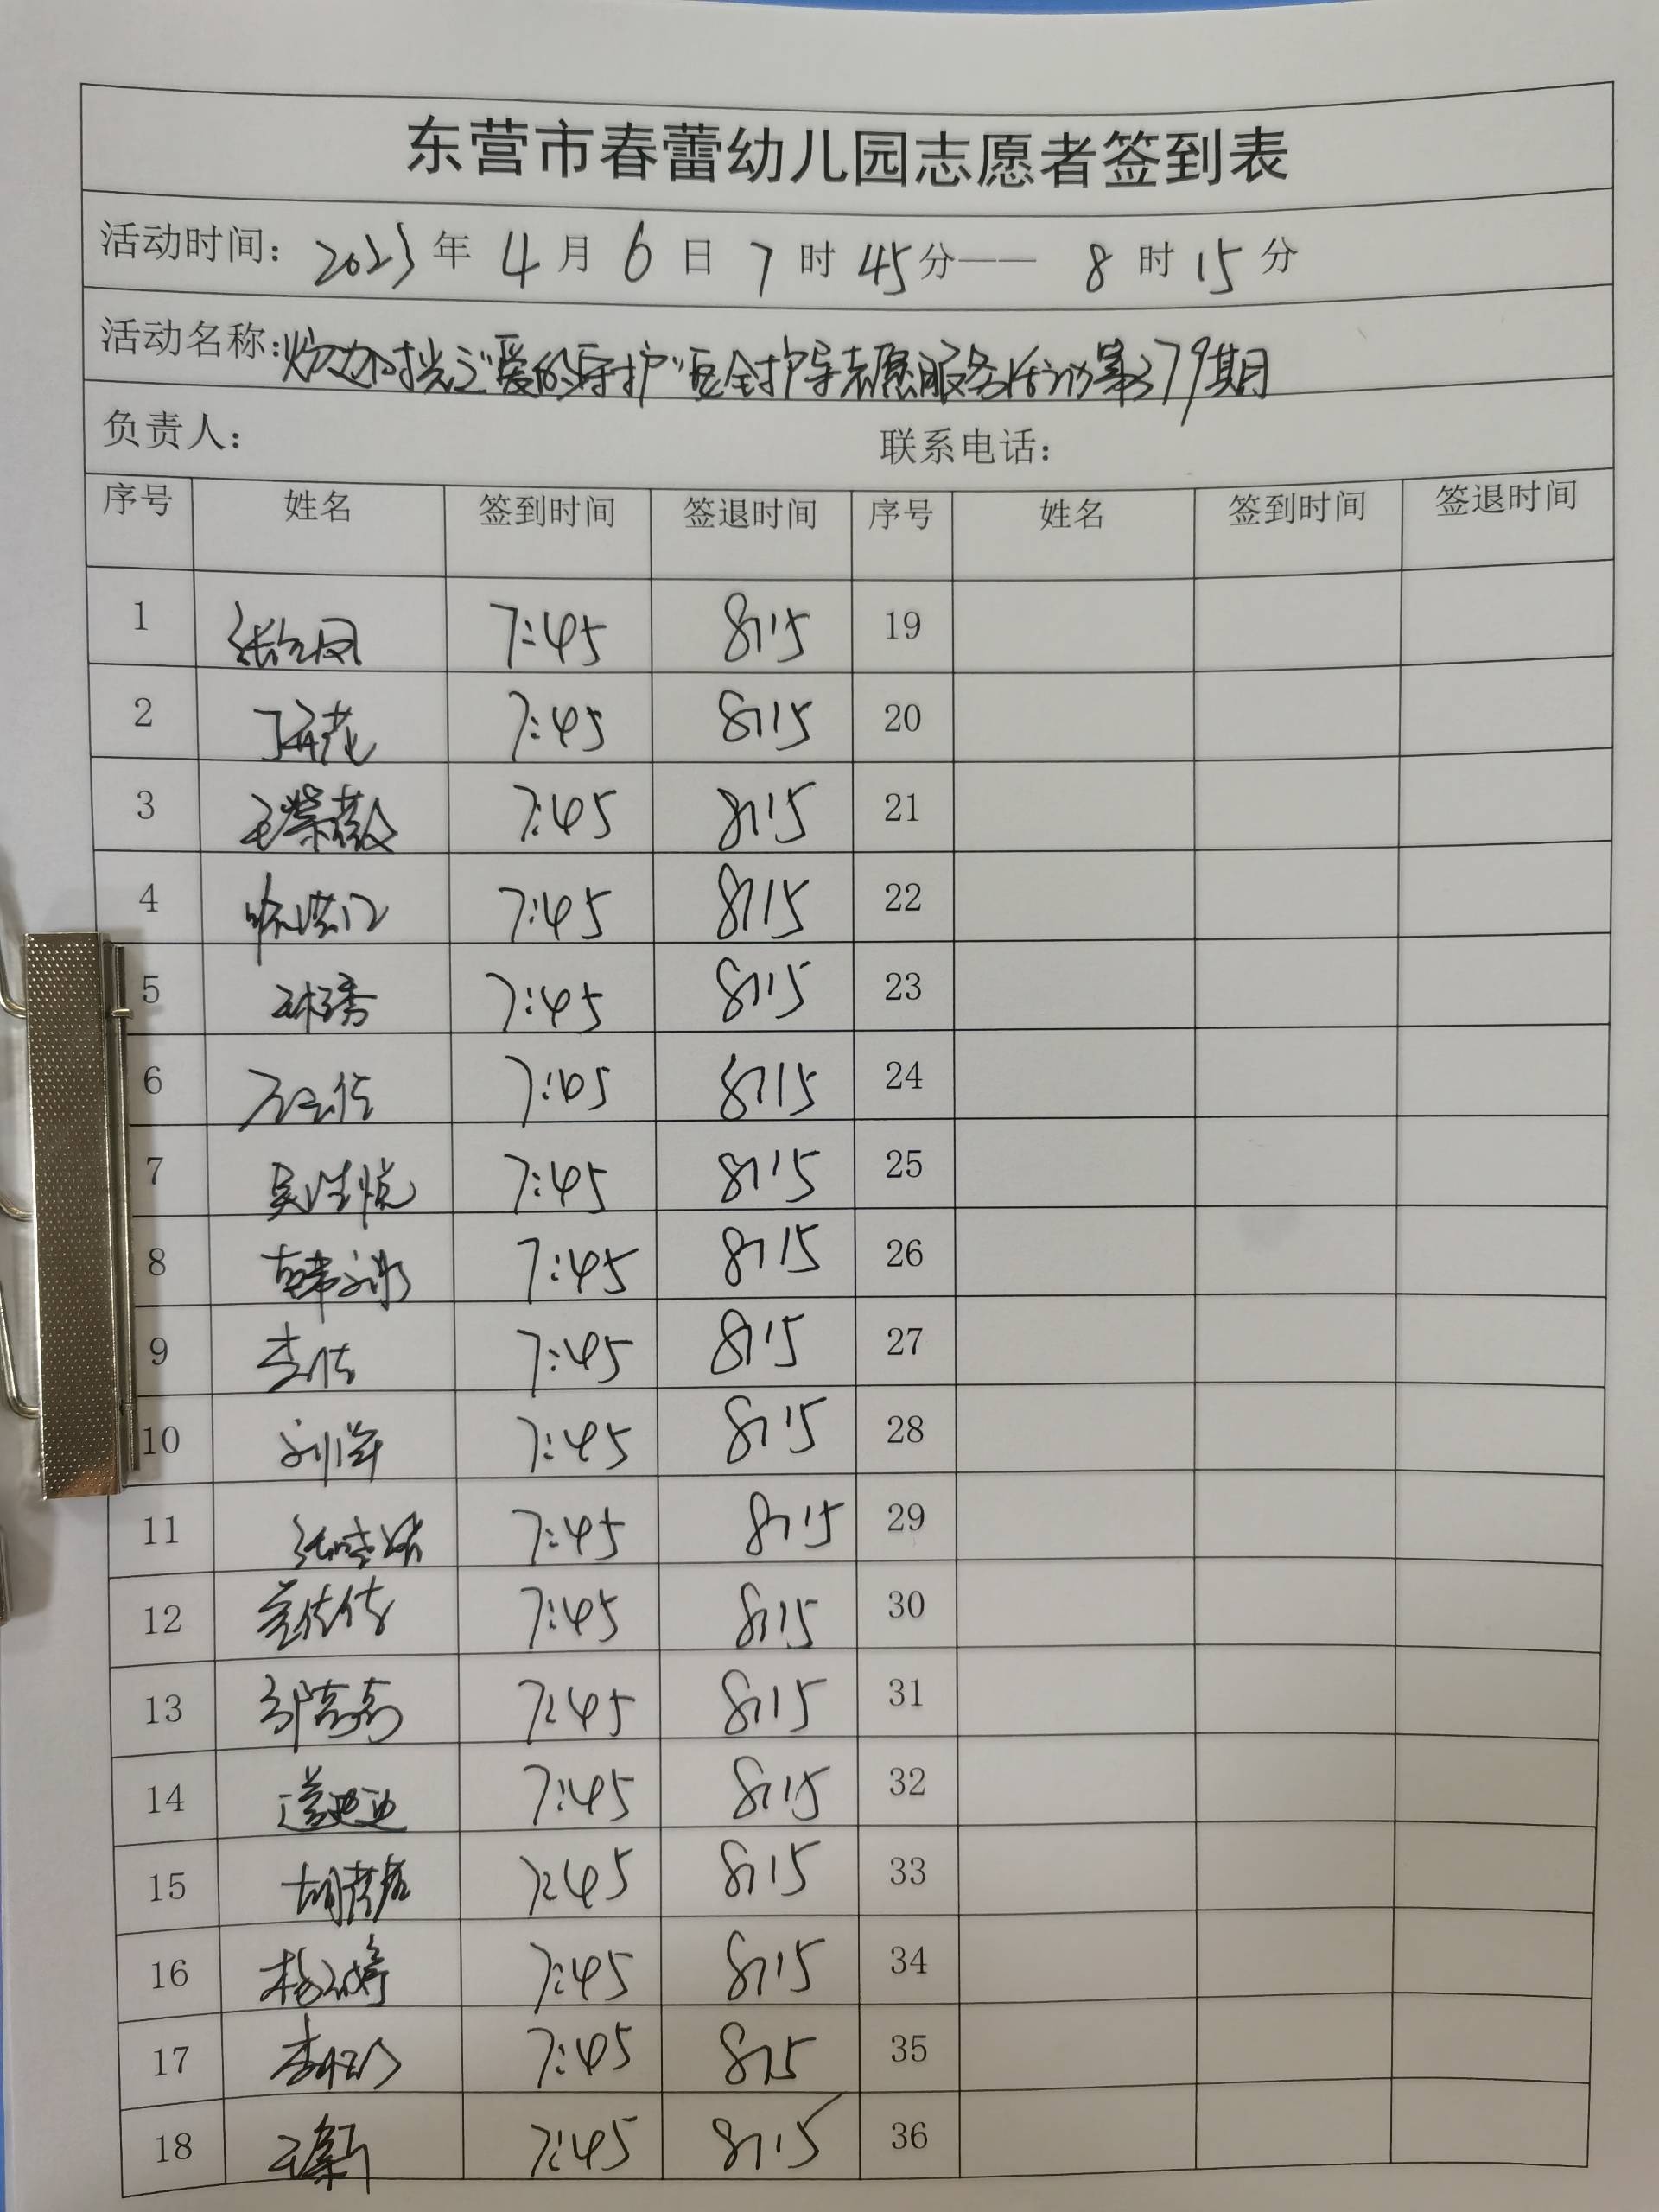 东营市春蕾幼儿园志愿者签到表
活动时间: 2023 年 4 月 6 日 7 时 45 分—— 8 时 15 分
活动名称: 时光之"爱的守护"安全护导志愿服务活动第379期
负责人: 联系电话:
序号 姓名 签到时间 签退时间 序号 姓名 签到时间 签退时间
1 7:45 8:15 19
2 7:45 8:15 20
3 王紫薇 7:45 8:15 21
4 7:45 8:15 22
5 7:45 8:15 23
6 7:45 8:15 24
7 吴洁悦 7:45 8:15 25
8 7:45 8:15 26
9 李佳 7:45 8:15 27
10 刘洋 7:45 8:15 28
11 7:45 8:15 29
12 7:45 8:15 30
13 7:45 8:15 31
14 7:45 8:15 32
15 7:45 8:15 33
16 7:45 8:15 34
17 7:45 8:15 35
18 王新 7:45 8:15 36